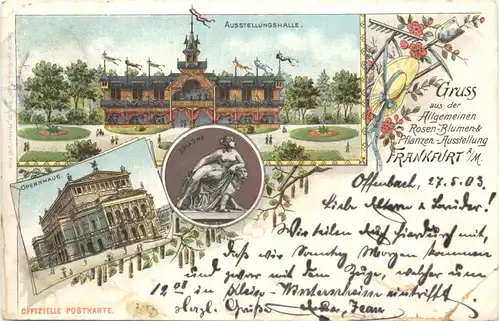 AUSSTELLUNGSHALLE.
Gruss
aus der
Allgemeinen
Rosen-Blumen &
Pflanzen-Ausstellung
FRANKFURT a/M.
OPERNHAUS.
ARIADNE
Offenbach, 27.5.03
Liebe Eltern & Brüder!
Wir teilen Euch hierdurch mit,
daß wir Sonntag Morgen kommen
und zwar mit dem Zuge, welcher um
12 08 in Klein-Winternheim eintrifft
Herzl. Grüße Jean
OFFIZIELLE POSTKARTE.